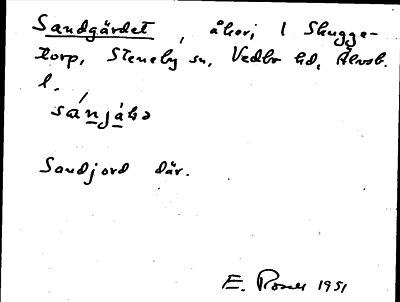 Sandgärdet, åker, 1 Skugge-
torp, Steneby sn, Vedbo hd, Älvsb.
l.
sánjàḷə
Sandjord där.
E. Rosell 1951